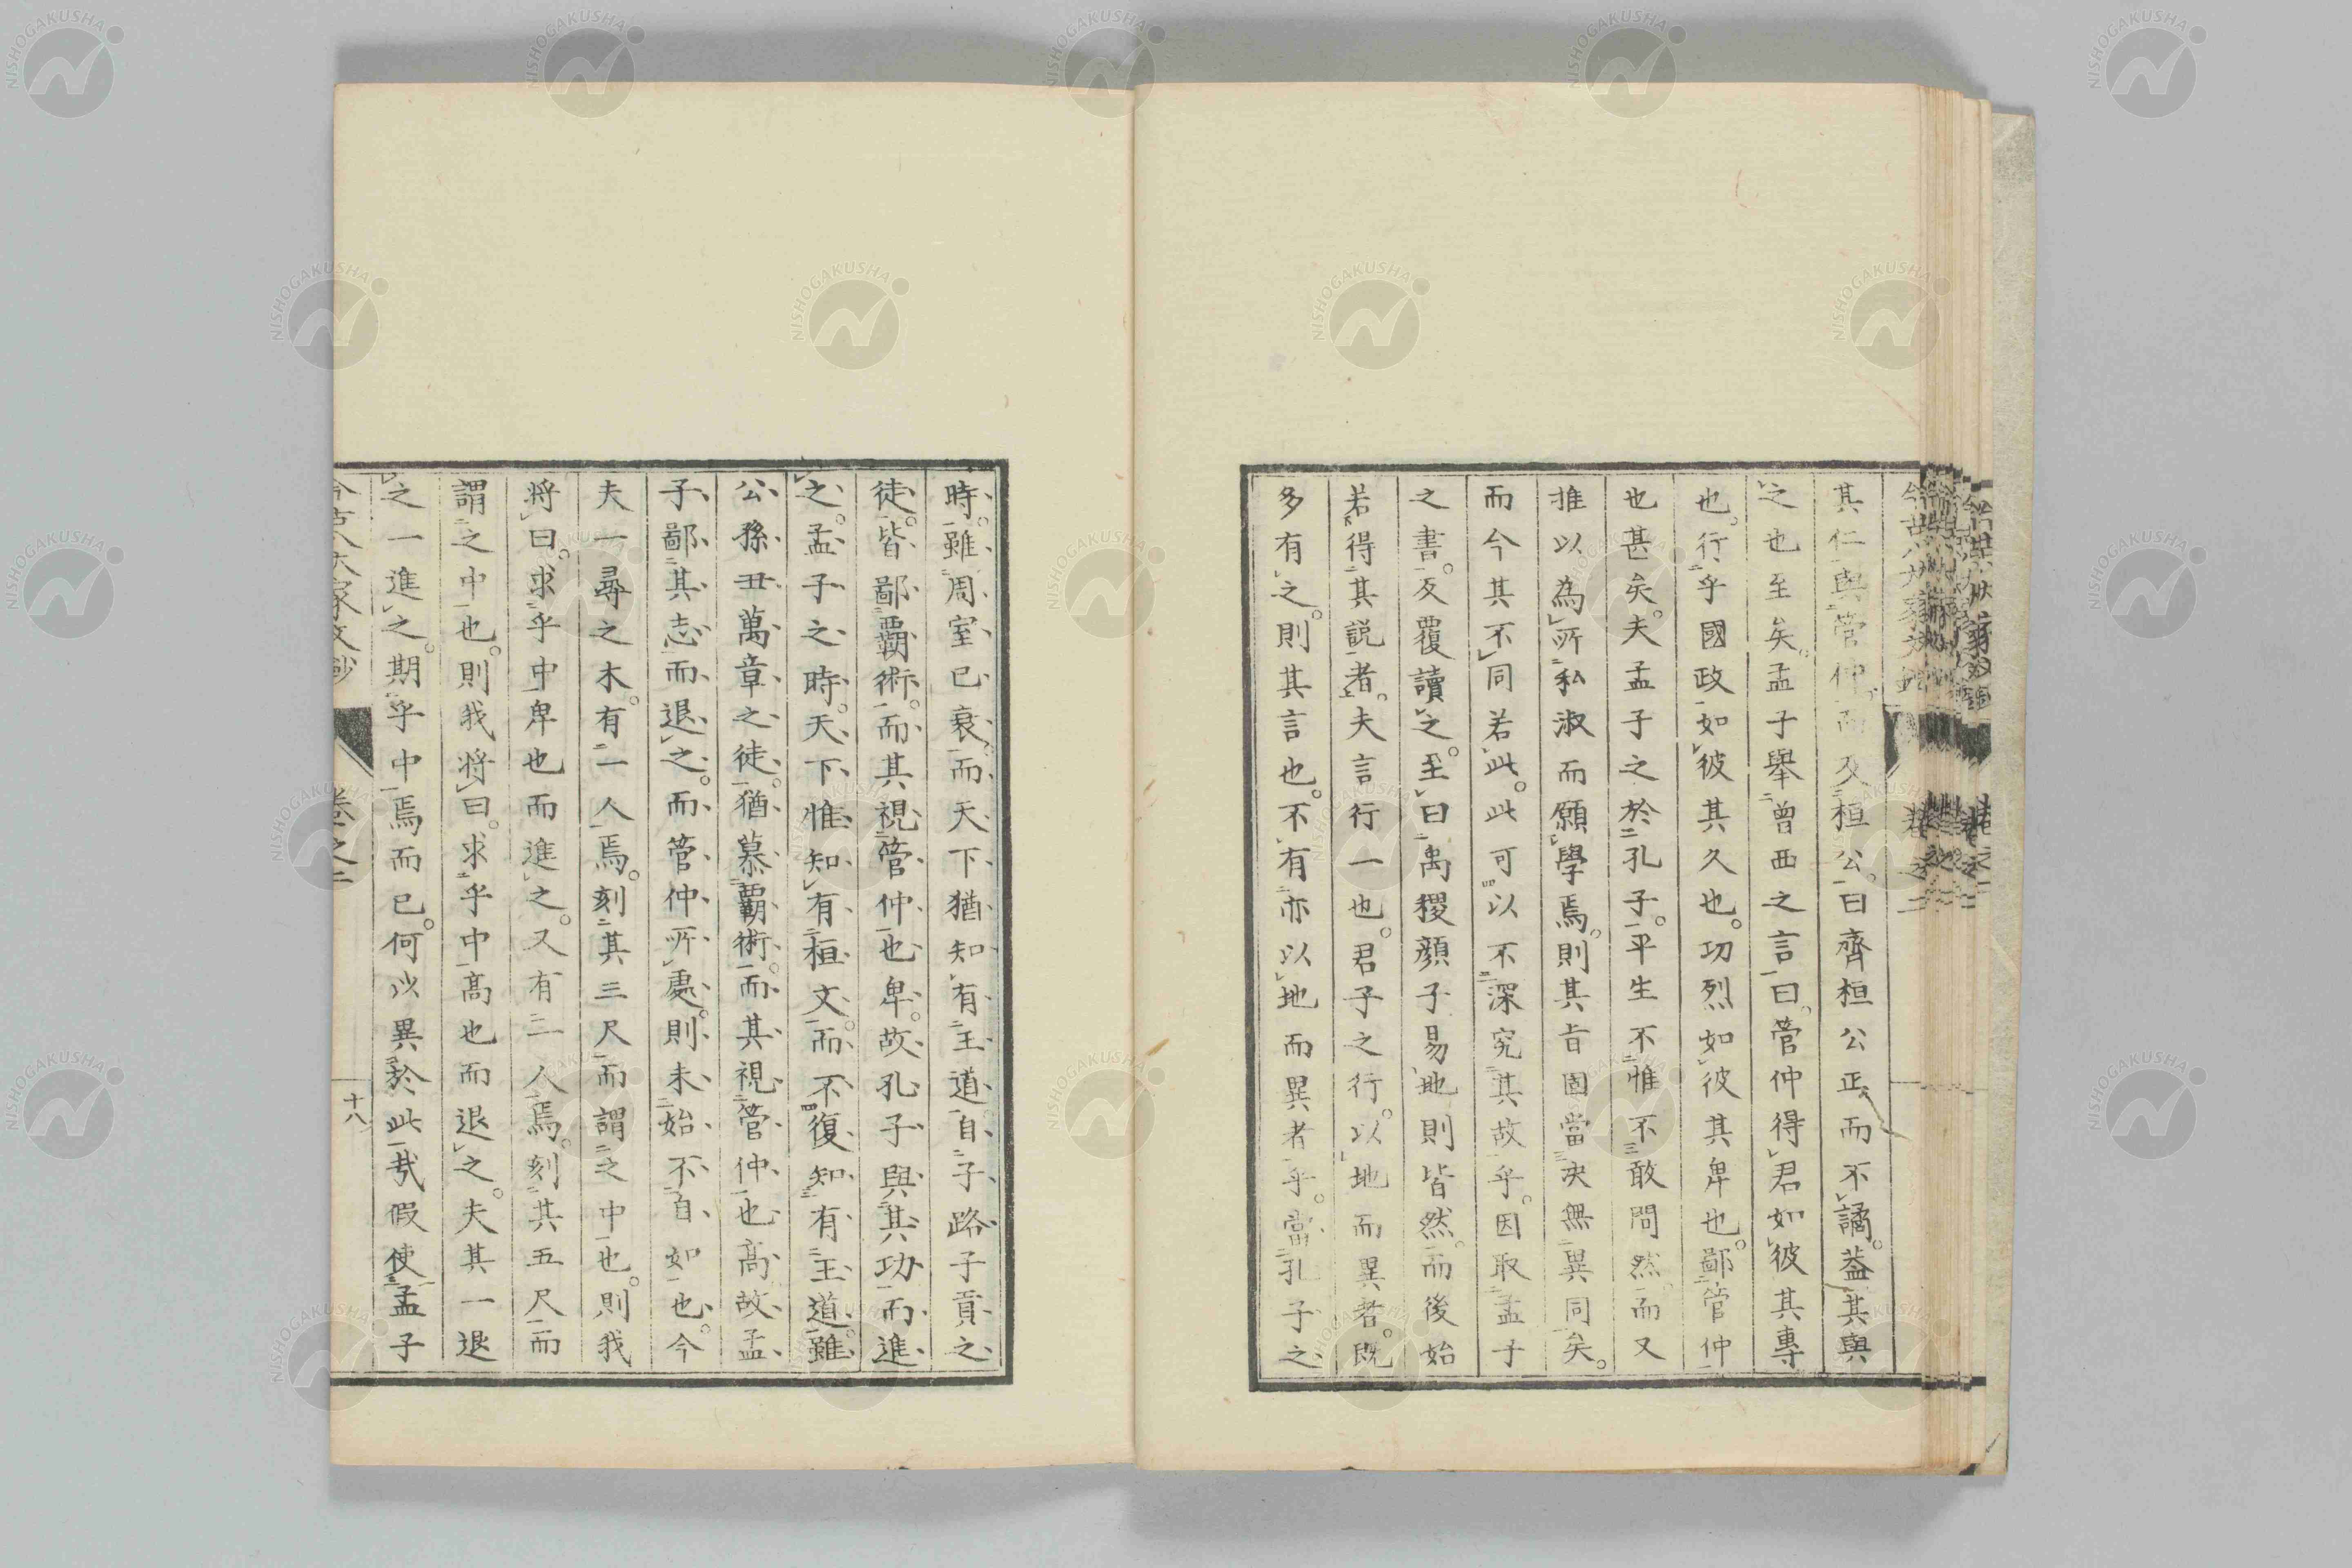 其仁與管仲。而及桓公。曰齊桓公正而不譎。蓋其與
之也至矣。孟子舉曾西之言曰。管仲得君如彼其專
也。行乎國政如彼其久也。功烈如彼其卑也。鄙管仲
也甚矣。夫孟子之於孔子。平生不惟不敢間然。而又
推以為所私淑而願學焉。則其旨固當決無異同矣。
而今其不同若此。此可以不深究其故乎。因取孟子
之書。反覆讀之。至曰禹稷顏子易地則皆然。而後始
若得其說者。夫言行一也。君子之行。以地而異者。既
多有之。則其言也。不有亦以地而異者乎。當孔子之
時。雖周室已衰。而天下猶知有王道。自子路子貢之
徒。皆鄙霸術。而其視管仲也卑。故孔子與其功而進
之。孟子之時。天下惟知有桓文。而不復知有王道。雖
公孫丑萬章之徒。猶慕霸術。而其視管仲也高。故孟
子鄙其志而退之。而管仲所處。則未始不自如也。今
夫一尋之木。有二人焉。刻其三尺而謂之中也。則我
將曰。求乎中卑也而進之。又有二人焉。刻其五尺而
謂之中也。則我將曰。求乎中高也而退之。夫其一退
之一進之。期乎中焉而已。何以異於此哉。假使孟子
卷之二
十八
NISHOGAKUSHA